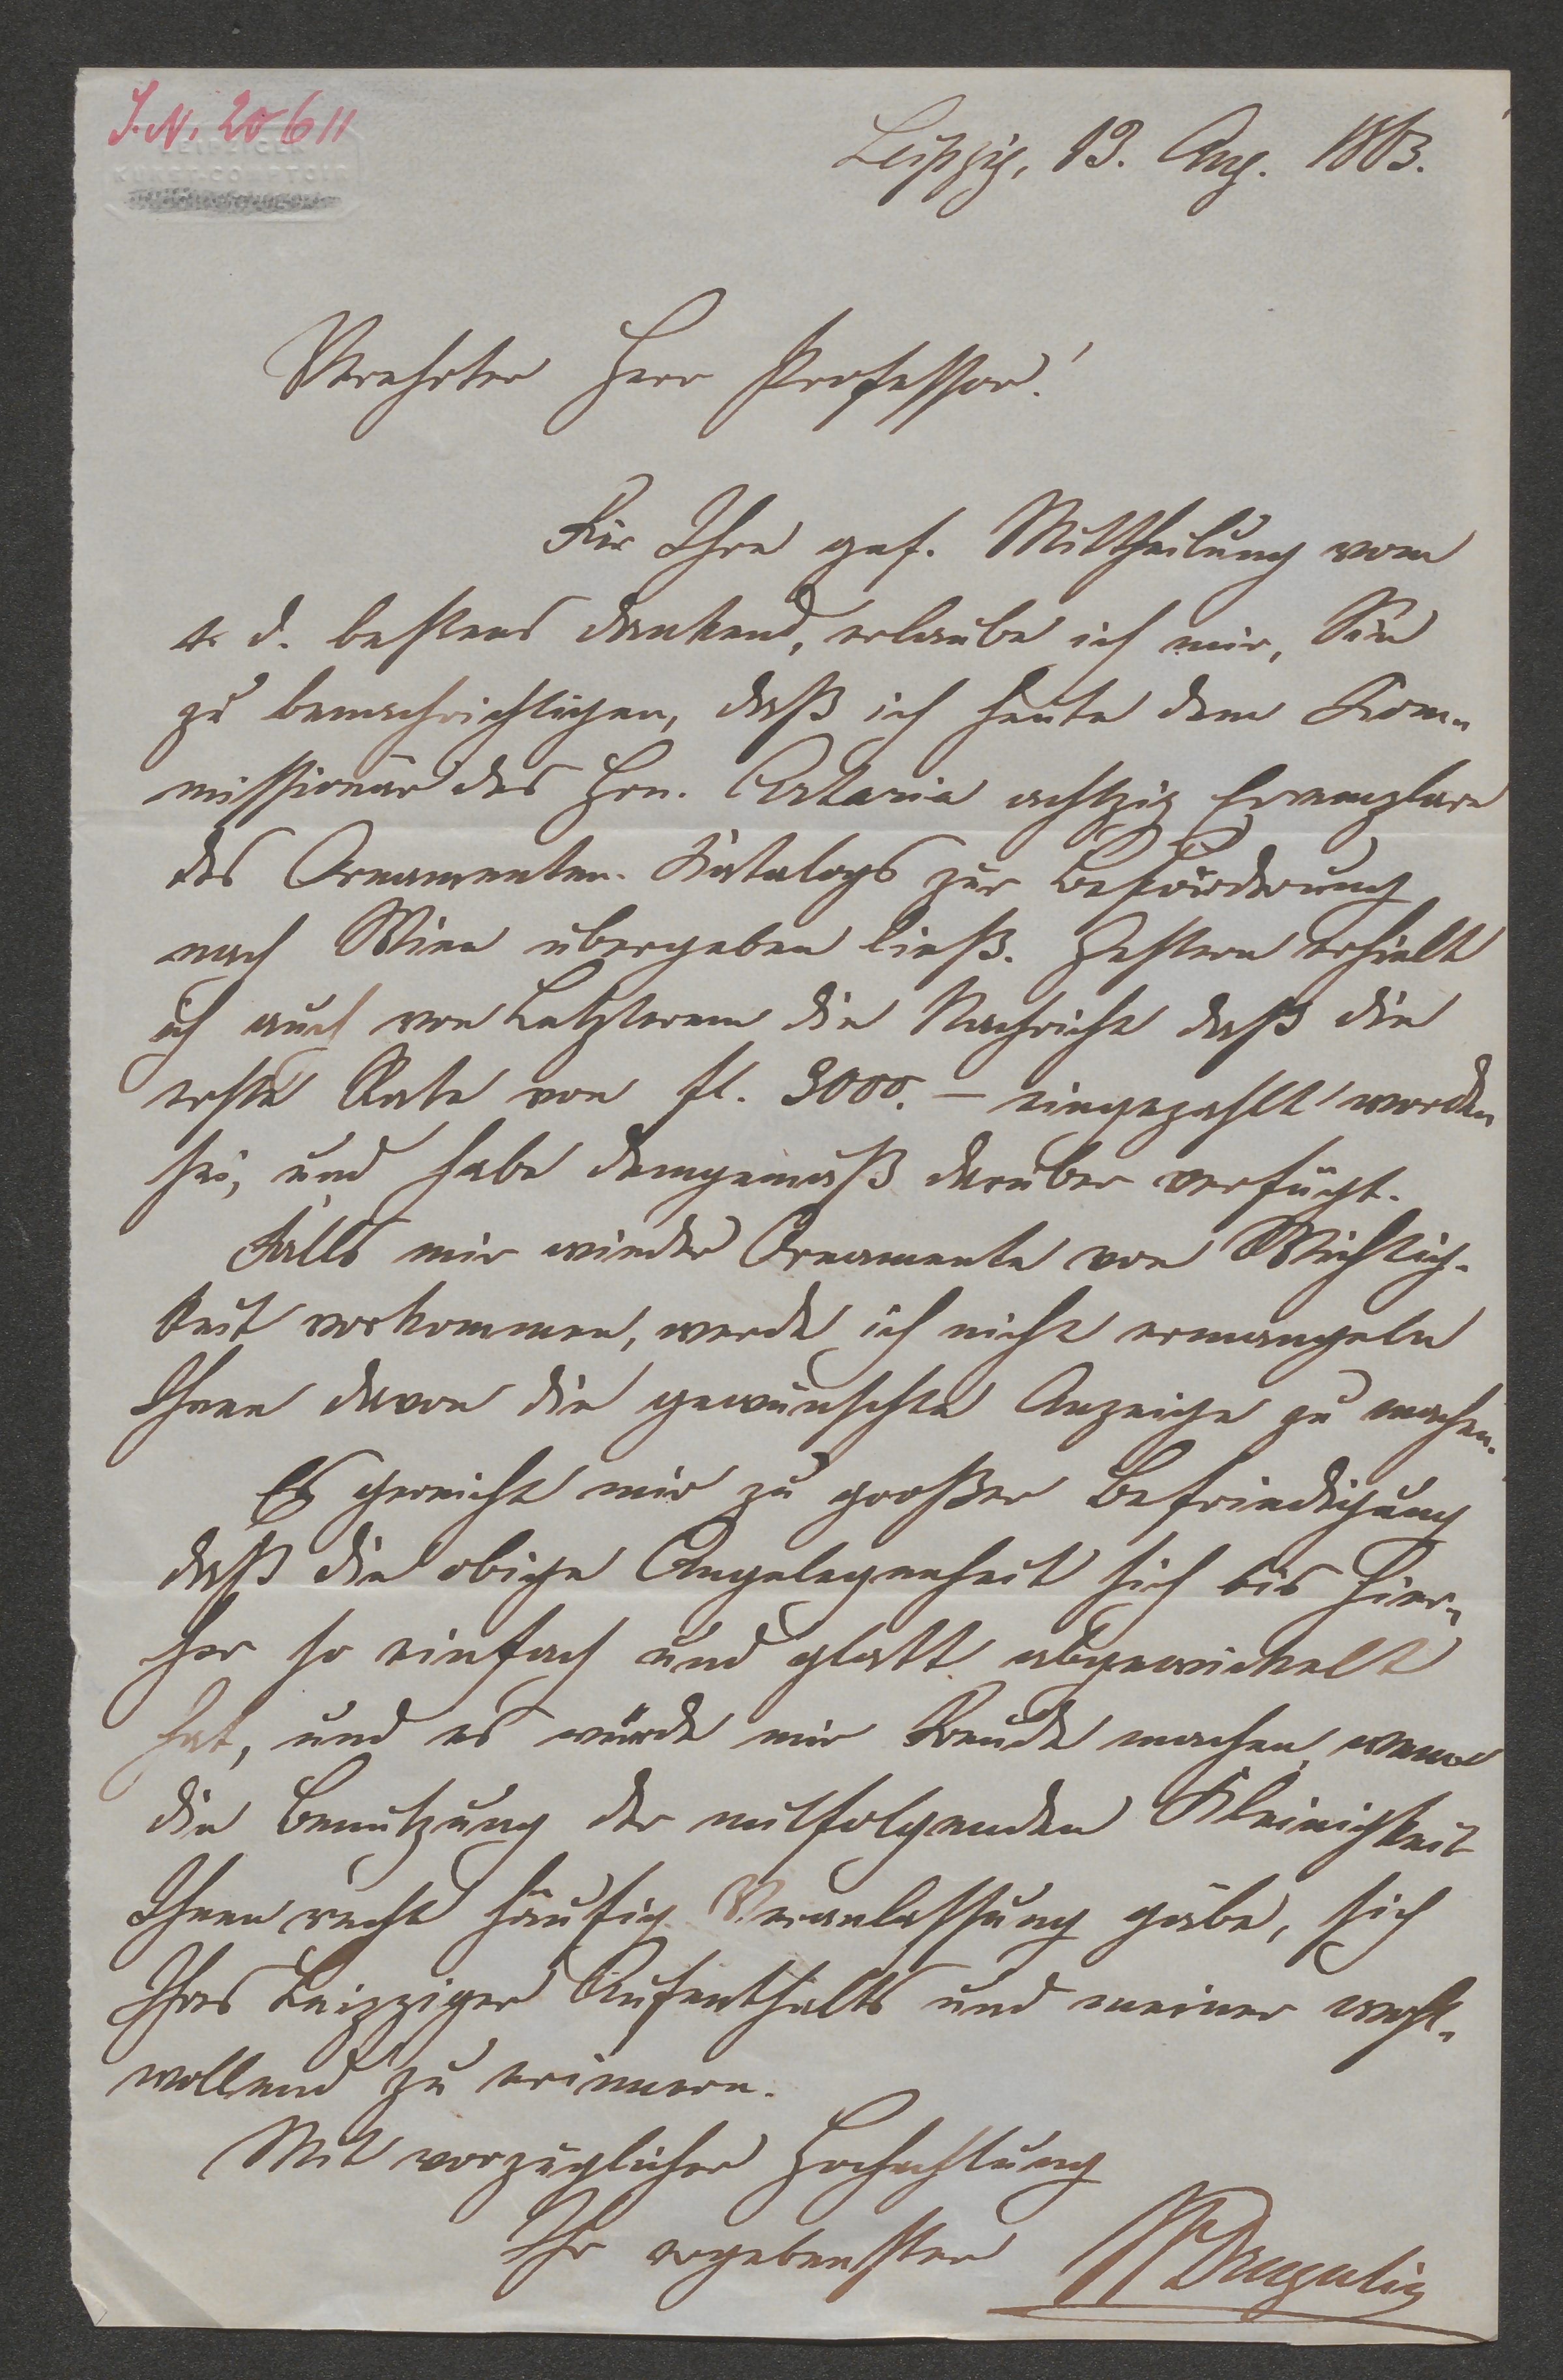 J. N. 20611
LEIPZIGER
KUNST-COMPTOIR
Leipzig, 13. Aug. 1863.
Verehrter Herr Professor!
Für Ihre gef. Mittheilung vom
4. d. bestens dankend, erlaube ich mir, Sie
zu benachrichtigen, daß ich heute dem Kom-
missionär des Hrn. Artaria achtzig Exemplare
des Ornamenten-Katalogs zur Beförderung
nach Wien übergeben ließ. Gestern erhielt
ich auch von Letzterem die Nachricht daß die
erste Rate von fl. 3000.- eingezahlt worden
sei, und habe demgemäß darüber verfügt.
Falls mir wieder Ornamente von Wichtig-
keit vorkommen, werde ich nicht ermangeln
Ihnen davon die gewünschte Anzeige zu machen.
Es gereicht mir zu großer Befriedigung
daß die obige Angelegenheit sich bis hier-
her so einfach und glatt abgewickelt
hat, und es würde mir Freude machen, wenn
die Benutzung der mitfolgenden Kleinigkeit
Ihnen recht häufig Veranlassung gäbe, sich
Ihres Leipziger Aufenthalts und meiner wohl-
wollend zu erinnern.
Mit vorzüglicher Hochachtung
Ihr ergebenster WDrugulin